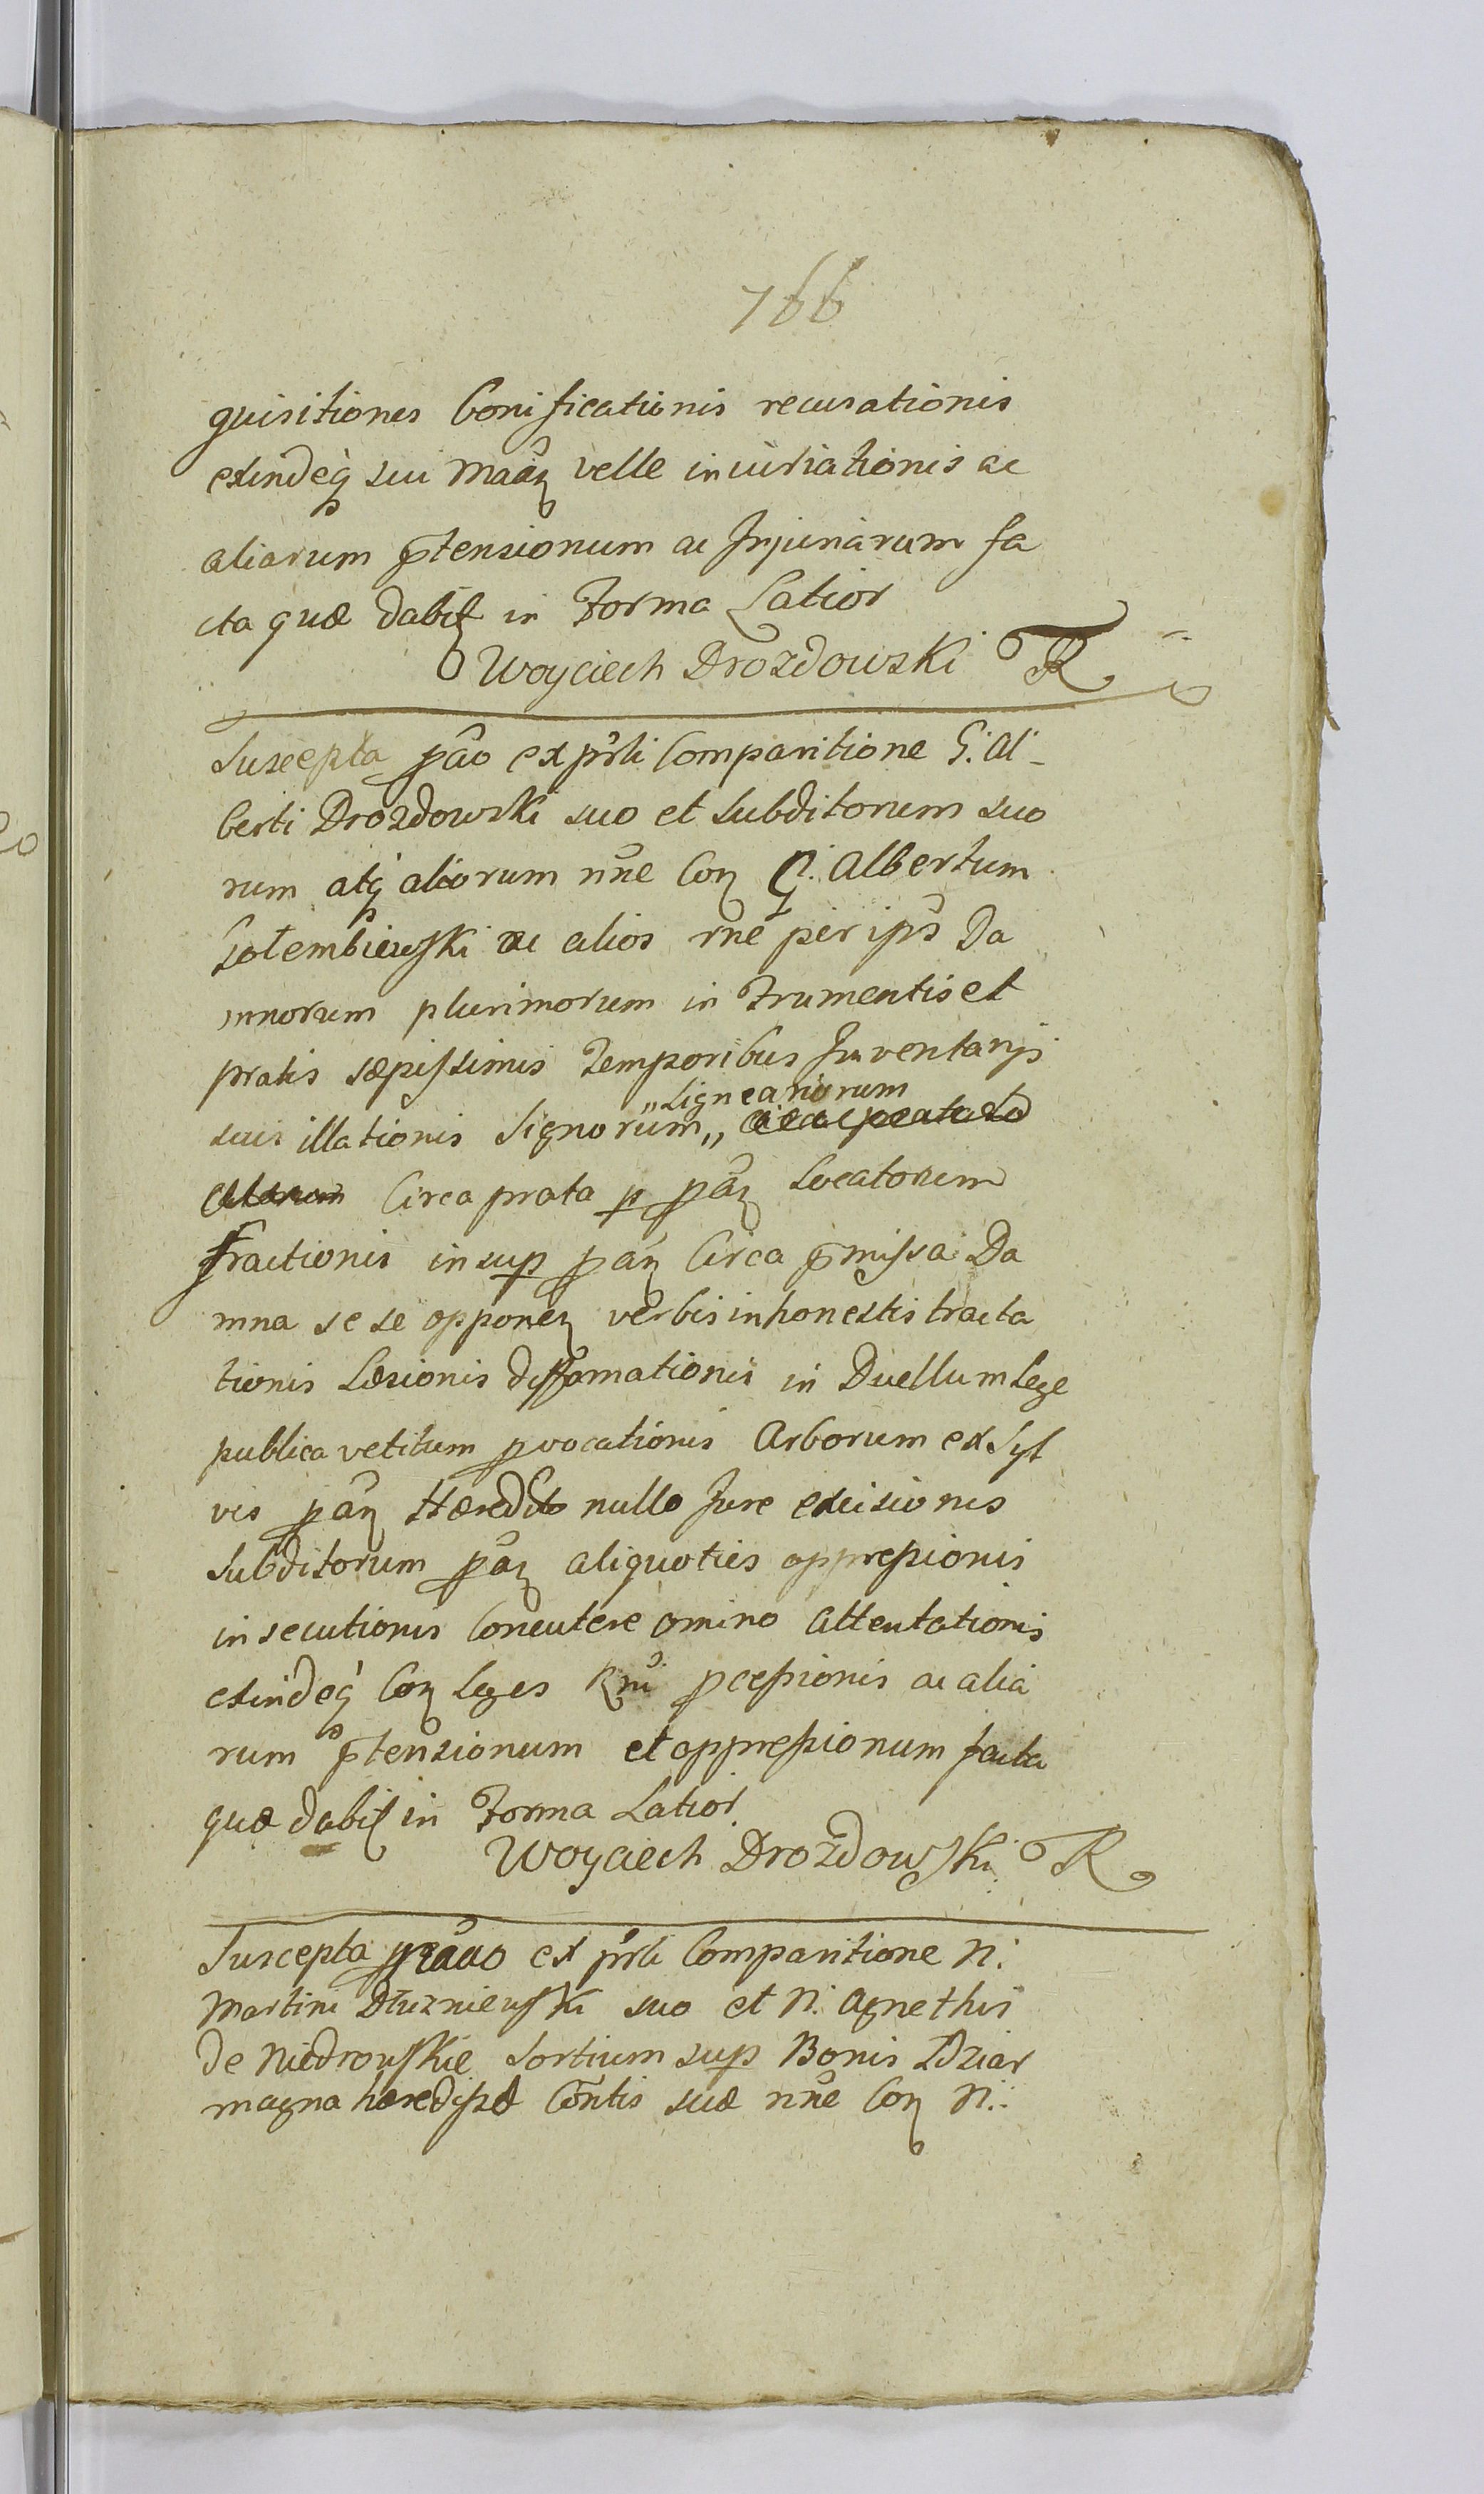 766
quisitiones bonificationis recusationis
exindeq sui maãz velle iniuriationis ac
aliarum ptensionum ac Injuriarum fa
cta quæ dabit in Forma Latior
Woyciech Drozdowski TR
Suscepta pão ex prsti Comparitione G. Al
berti Drozdowski suo et subditorum suo
rum atq aliorum nñe Con G. Albertum
Gołembiewski ac alios rñe per ips Da
mnorum plurimorum in Frumentis et
pratis sæpissimis Temporibus Inventarijs
suis illationis Signorum „ligneariorum„
Circa prata p pãz Locatorum
fractionis insup pãz Circa pmissa Da
mna sese opponez verbis inhonestis tracta
tionis Læsionis diffamationis in Duellum lege
publica vetitum pvocationis Arborum ex Syl
vis pãz Hæredit nullo Jure excisionis
Subditorum pãz aliquoties oppressionis
insecutionis Concutere omino attentationis
exindeq Con Leges Rni pcessionis ac alia
rum ptensionum et oppressionum facta
quæ dabit in Forma Latior
Woyciech Drozdowski TR
Suscepta ex prsti Comparitione N.
Martini Dłuzniewski suo et N. Agnethis
de Niedrowskie Sortium sup Bonis Zdziar
magna hæredissæ Cõntis suæ nñe Con N.